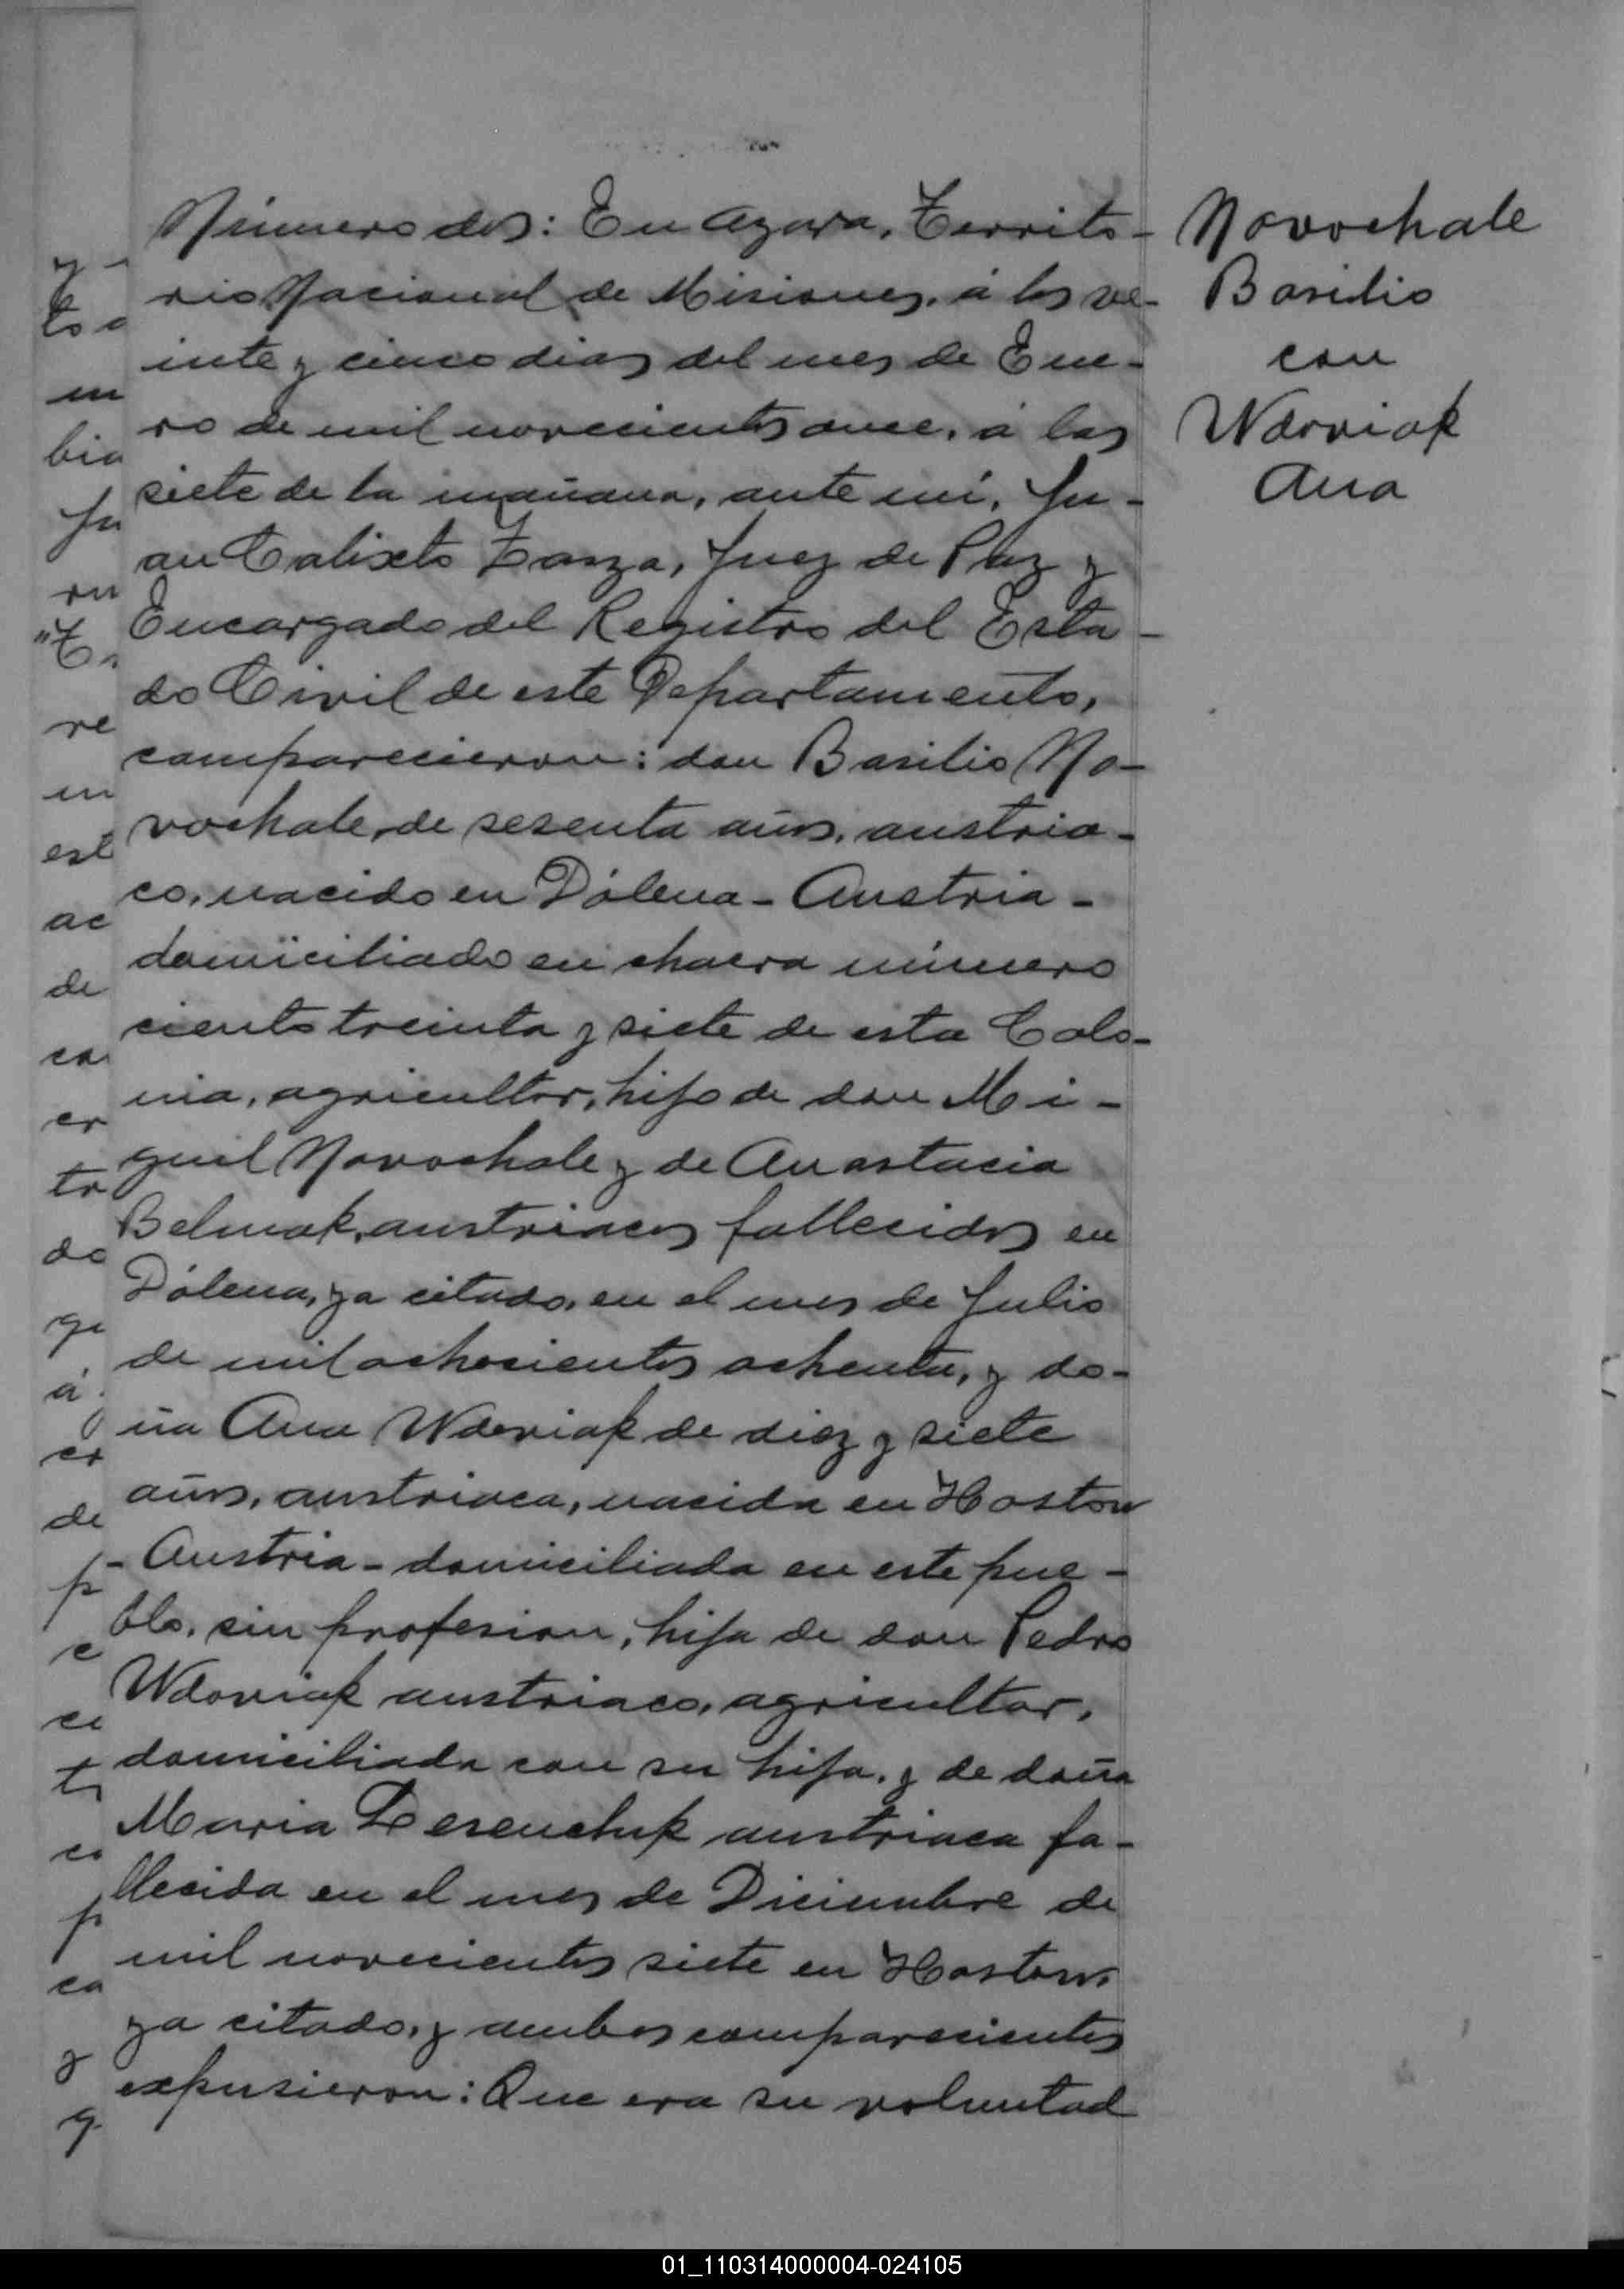 Número dos: En Azara, Territo-
rio Nacional de Misiones, á los ve-
inte y cinco dias del mes de Ene-
ro de mil novecientos once, á las
siete de la mañana, ante mí, Ju-
an Calixto Zarza, Juez de Paz y
Encargado del Registro del Esta-
do Civil de este Departamento,
comparecieron: don Basilio No-
vochale, de sesenta años, austria-
co, nacido en Dólena - Austria -
domiciliado en chacra número
ciento treinta y siete de esta Colo-
nia, agricultor, hijo de don Mi-
guel Novochale y de Anastacia
Belmak, austriacos fallecidos en
Dólena, ya citado, en el mes de Julio
de mil ochocientos ochenta, y do-
ña Ana Wdoviak de diez y siete
años, austriaca, nacida en Hostow
- Austria - domiciliada en este pue-
blo, sin profesion, hija de don Pedro
Wdoviak austriaco, agricultor,
domiciliada con su hija, y de doña
Maria Desenchuk austriaca fa-
llecida en el mes de Diciembre de
mil novecientos siete en Hostow,
ya citado, y ambos comparecientes
expusieron: Que era su voluntad
Novochale
Basilio
con
Wdoviak
Ana
01_110314000004-024105